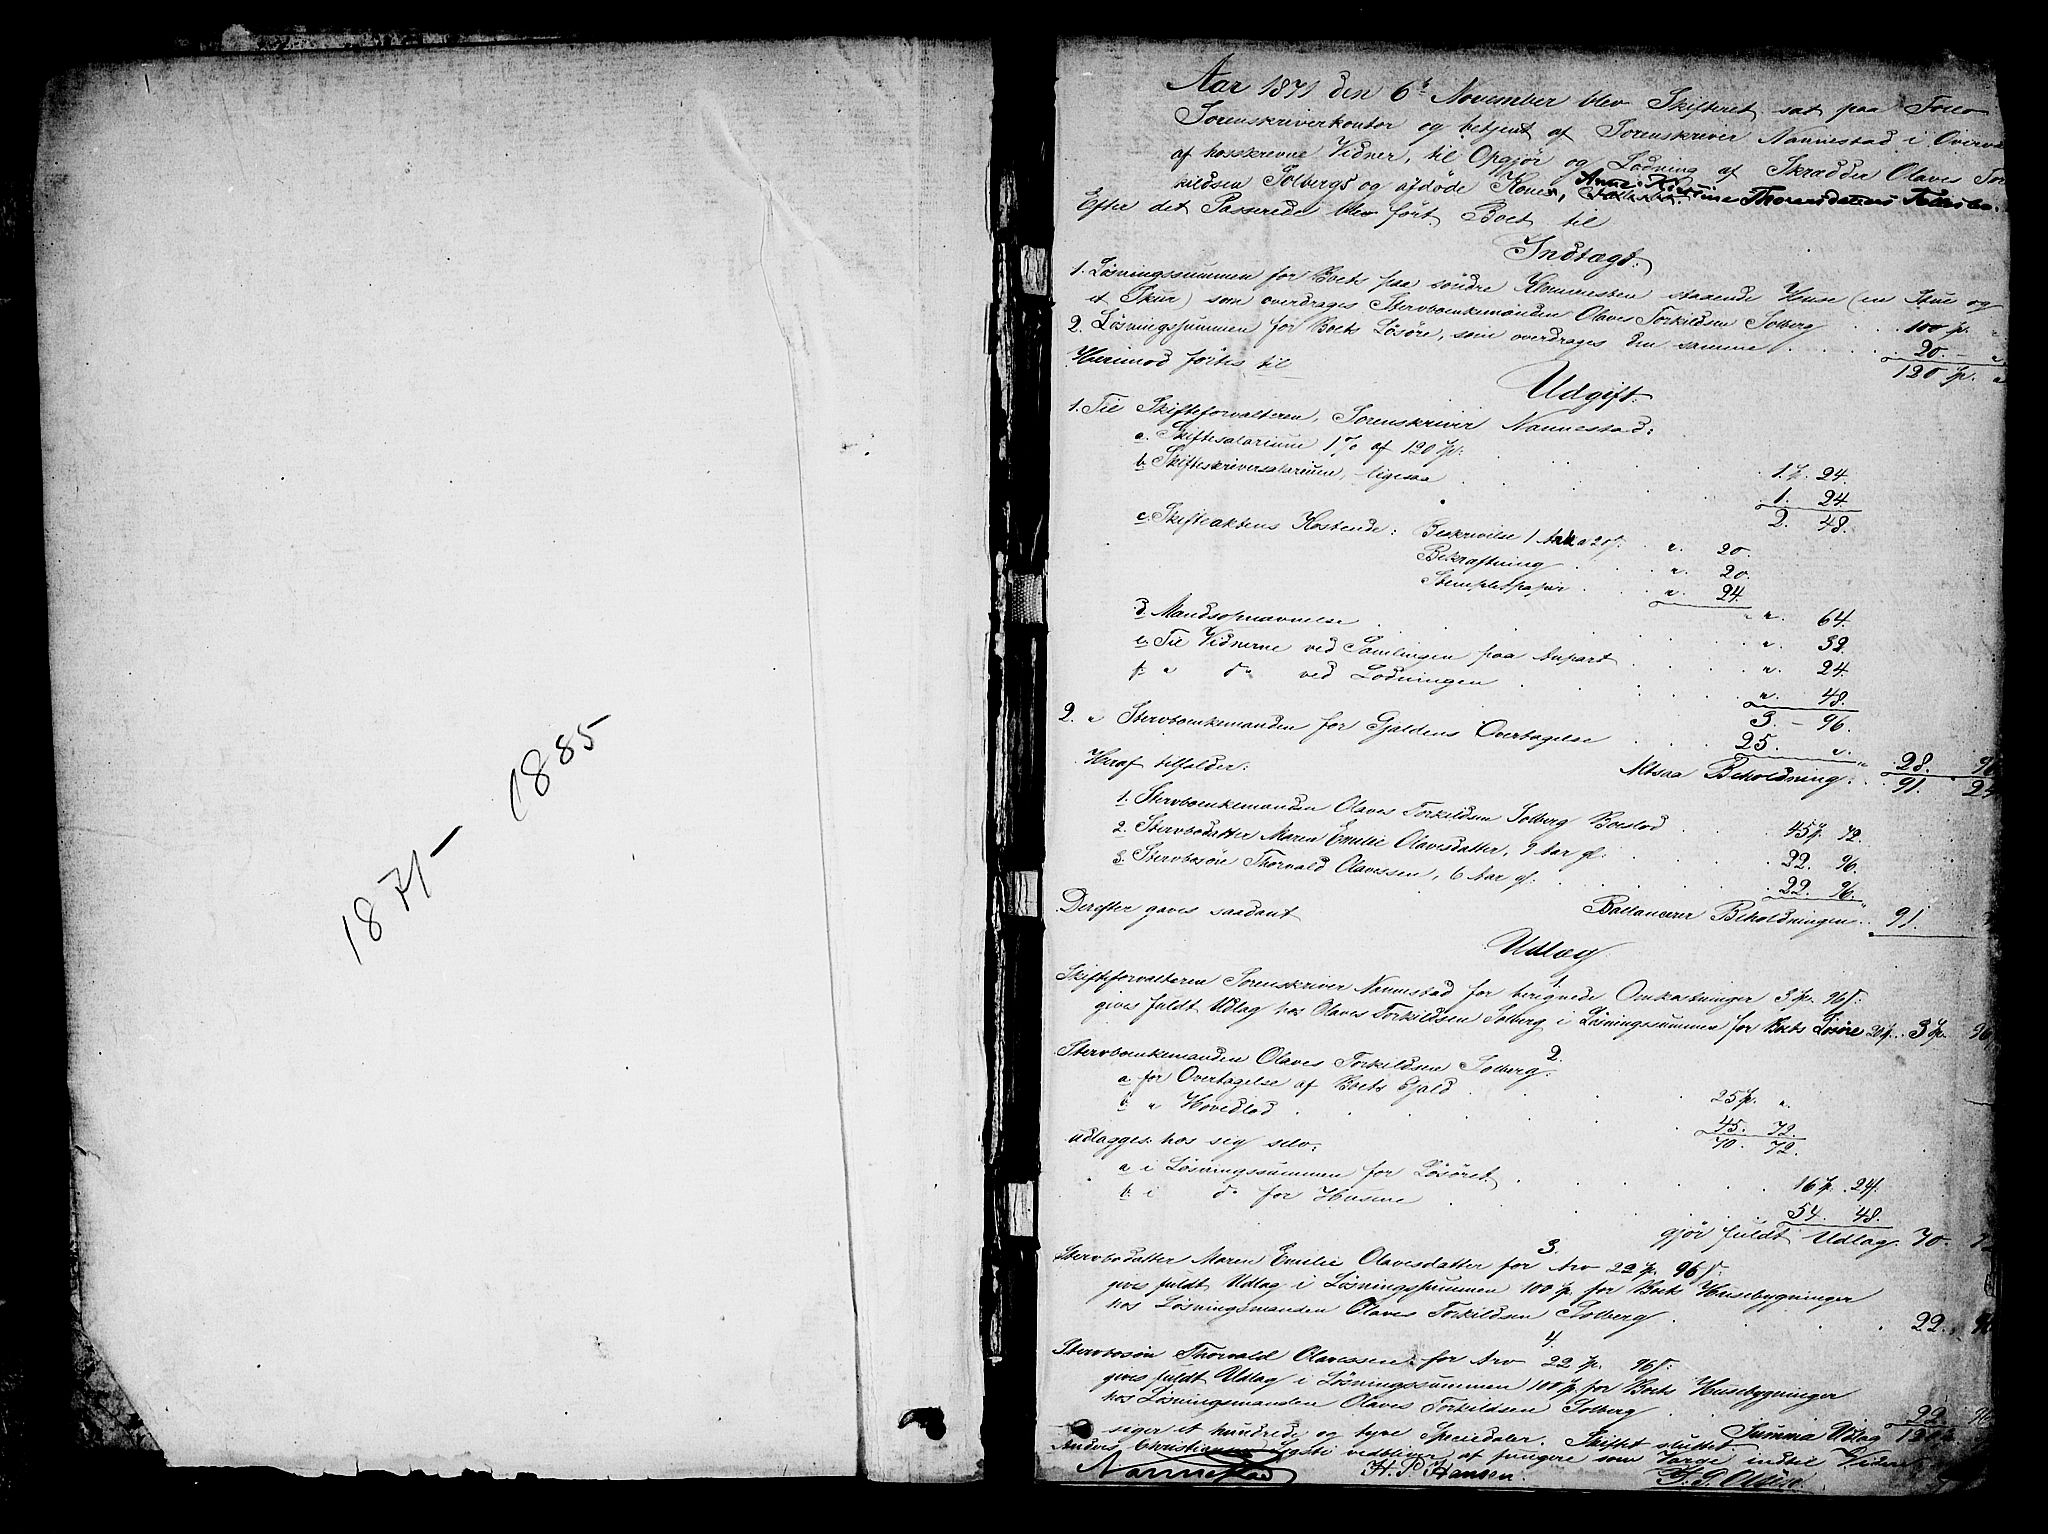 1871 - 1885
Aar 1871 den 6te November blev Skifteret sat paa Follo
Sorenskriverkontor og betjent af Sorenskriver Nannestad i Overvær
af hosskrevne Vidner, til Opgjør og Lodning af Skrædder Olaves Tor
kildsen Solbergs og afdøde Kone, Anne Kirstine Thoresdatters Fællesbo.
Efter det Passerede blev ført Boet til
Indtægt:
1. Løsningssummen for Boets paa søndre staaende Huse (en Stue og
et Skur) som overdrages Stervboenkemanden Olaves Torkildsen Solberg 100 Sp. "
2. Løsningssummen for Boets Løsøre, som overdrages den samme 20 - "
120 Sp. "
Herimod førtes til
Udgift:
1. Til Skifteforvalteren, Sorenskriver Nannestad:
a. Skiftesalarium 1% af 120 Sp. 1 Sp. 24.
b. Skifteskriversalarium, ligesaa 1. 24.
2. 48.
c. Skifteaktens Kostende: Beskrivelse 1 Ark a 20 s. ". 20.
Bekræftning ". 20.
Stemplet papir ". 24.
". 64.
d. Mandsopnævnelse ". 32.
e. Til Vidnerne ved Samlingen paa Anpart ". 24.
f. " do ved Lodningen ". 48.
3. - 96.
2. " Stervboenkemanden for Gjældens Overtagelse 25. ".
28. 96
Altsaa Beholdning: 91. 24
Heraf tilfalder:
1. Stervboenkemanden Olaves Torkildsen Solberg Boeslod 45 Sp. 72.
2. Stervbodatter Maren Emilie Olavesdatter, 9 Aar gl. 22. 96.
3. Stervbosøn Thorvald Olavessen, 6 Aar gl. 22. 96.
Ballancerer Beholdningen 91.
Derefter gaves saadant
Udlæg
1.
Skifteforvalteren Sorenskriver Nannestad for beregnede Omkostninger 3 Sp. 96 s.
gives fuldt Udlæg hos Olaves Torkildsen Solberg i Løsningssummen for Boets Løsøre 20 Sp. 3 Sp. 96
2.
Stervboenkemanden Olaves Torkildsen Solberg:
a. for Overtagelse af Boets Gjæld 25 Sp. ".
b. " Hovedlod 45. 72.
70. 72.
udlægges hos sig selv:
a. i Løsningssummen for Løsøret 16 Sp. 24 s.
b. i do for Husene 54. 48.
gjør fuldt Udlæg. 70. 72
3.
Stervbodatter Maren Emilie Olavesdatter for Arv 22 Sp. 96 s.
gives fuldt Udlæg i Løsningssummen 100 Sp. for Boets Husebygninger
hos Løsningsmanden Olaves Torkildsen Solberg 22. 96
4.
Stervbosøn Thorvald Olavessen for Arv 22 Sp. 96 s.
gives fuldt Udlæg i Løsningssummen 100 Sp. for Boets Husebygninger
hos Løsningsmanden Olaves Torkildsen Solberg 22. 96
Summa Udlæg 120 Sp.
siger et hundrede og tyve Speciedaler. Skiftet sluttet
Anders Christiansen vedbliver at fungere som Værge indtil Videre
Nannestad H. P. Hansen.